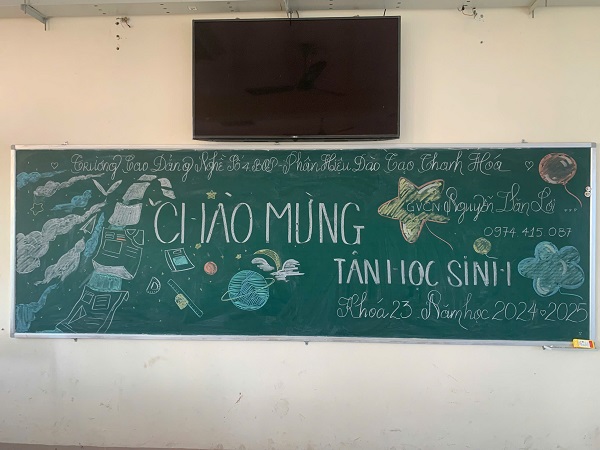 Trường Cao Đẳng Nghề Số 4 BQP - Phân Hiệu Đào Tạo Thanh Hóa
CHÀO MỪNG
GVCN Nguyễn Văn Lợi ...
0974 415 087
TÂN HỌC SINH
Khóa 23 Năm học 2024 2025